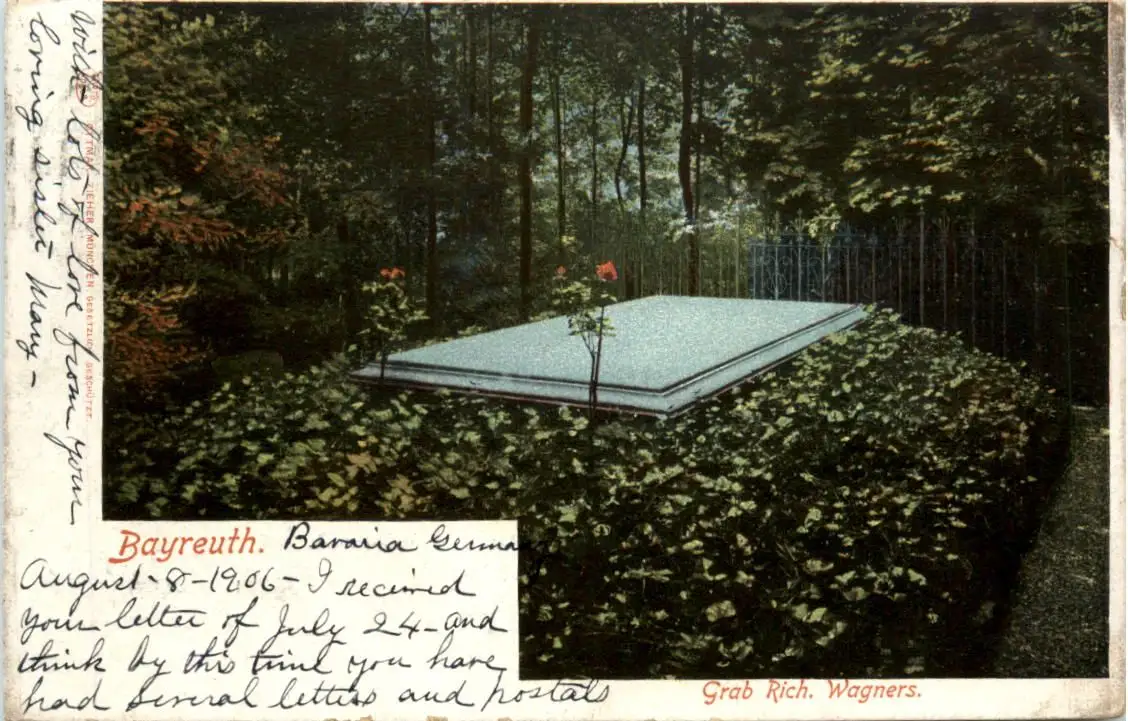 With lots of love from your
loving sister Mary -
OTTMAR ZIEHER, MÜNCHEN. GESETZLICH GESCHÜTZT.
Bayreuth. Bavaria Germany
August - 8 - 1906 - I received
your letter of July 24 - and
think by this time you have
had several letters and postals
Grab Rich. Wagners.